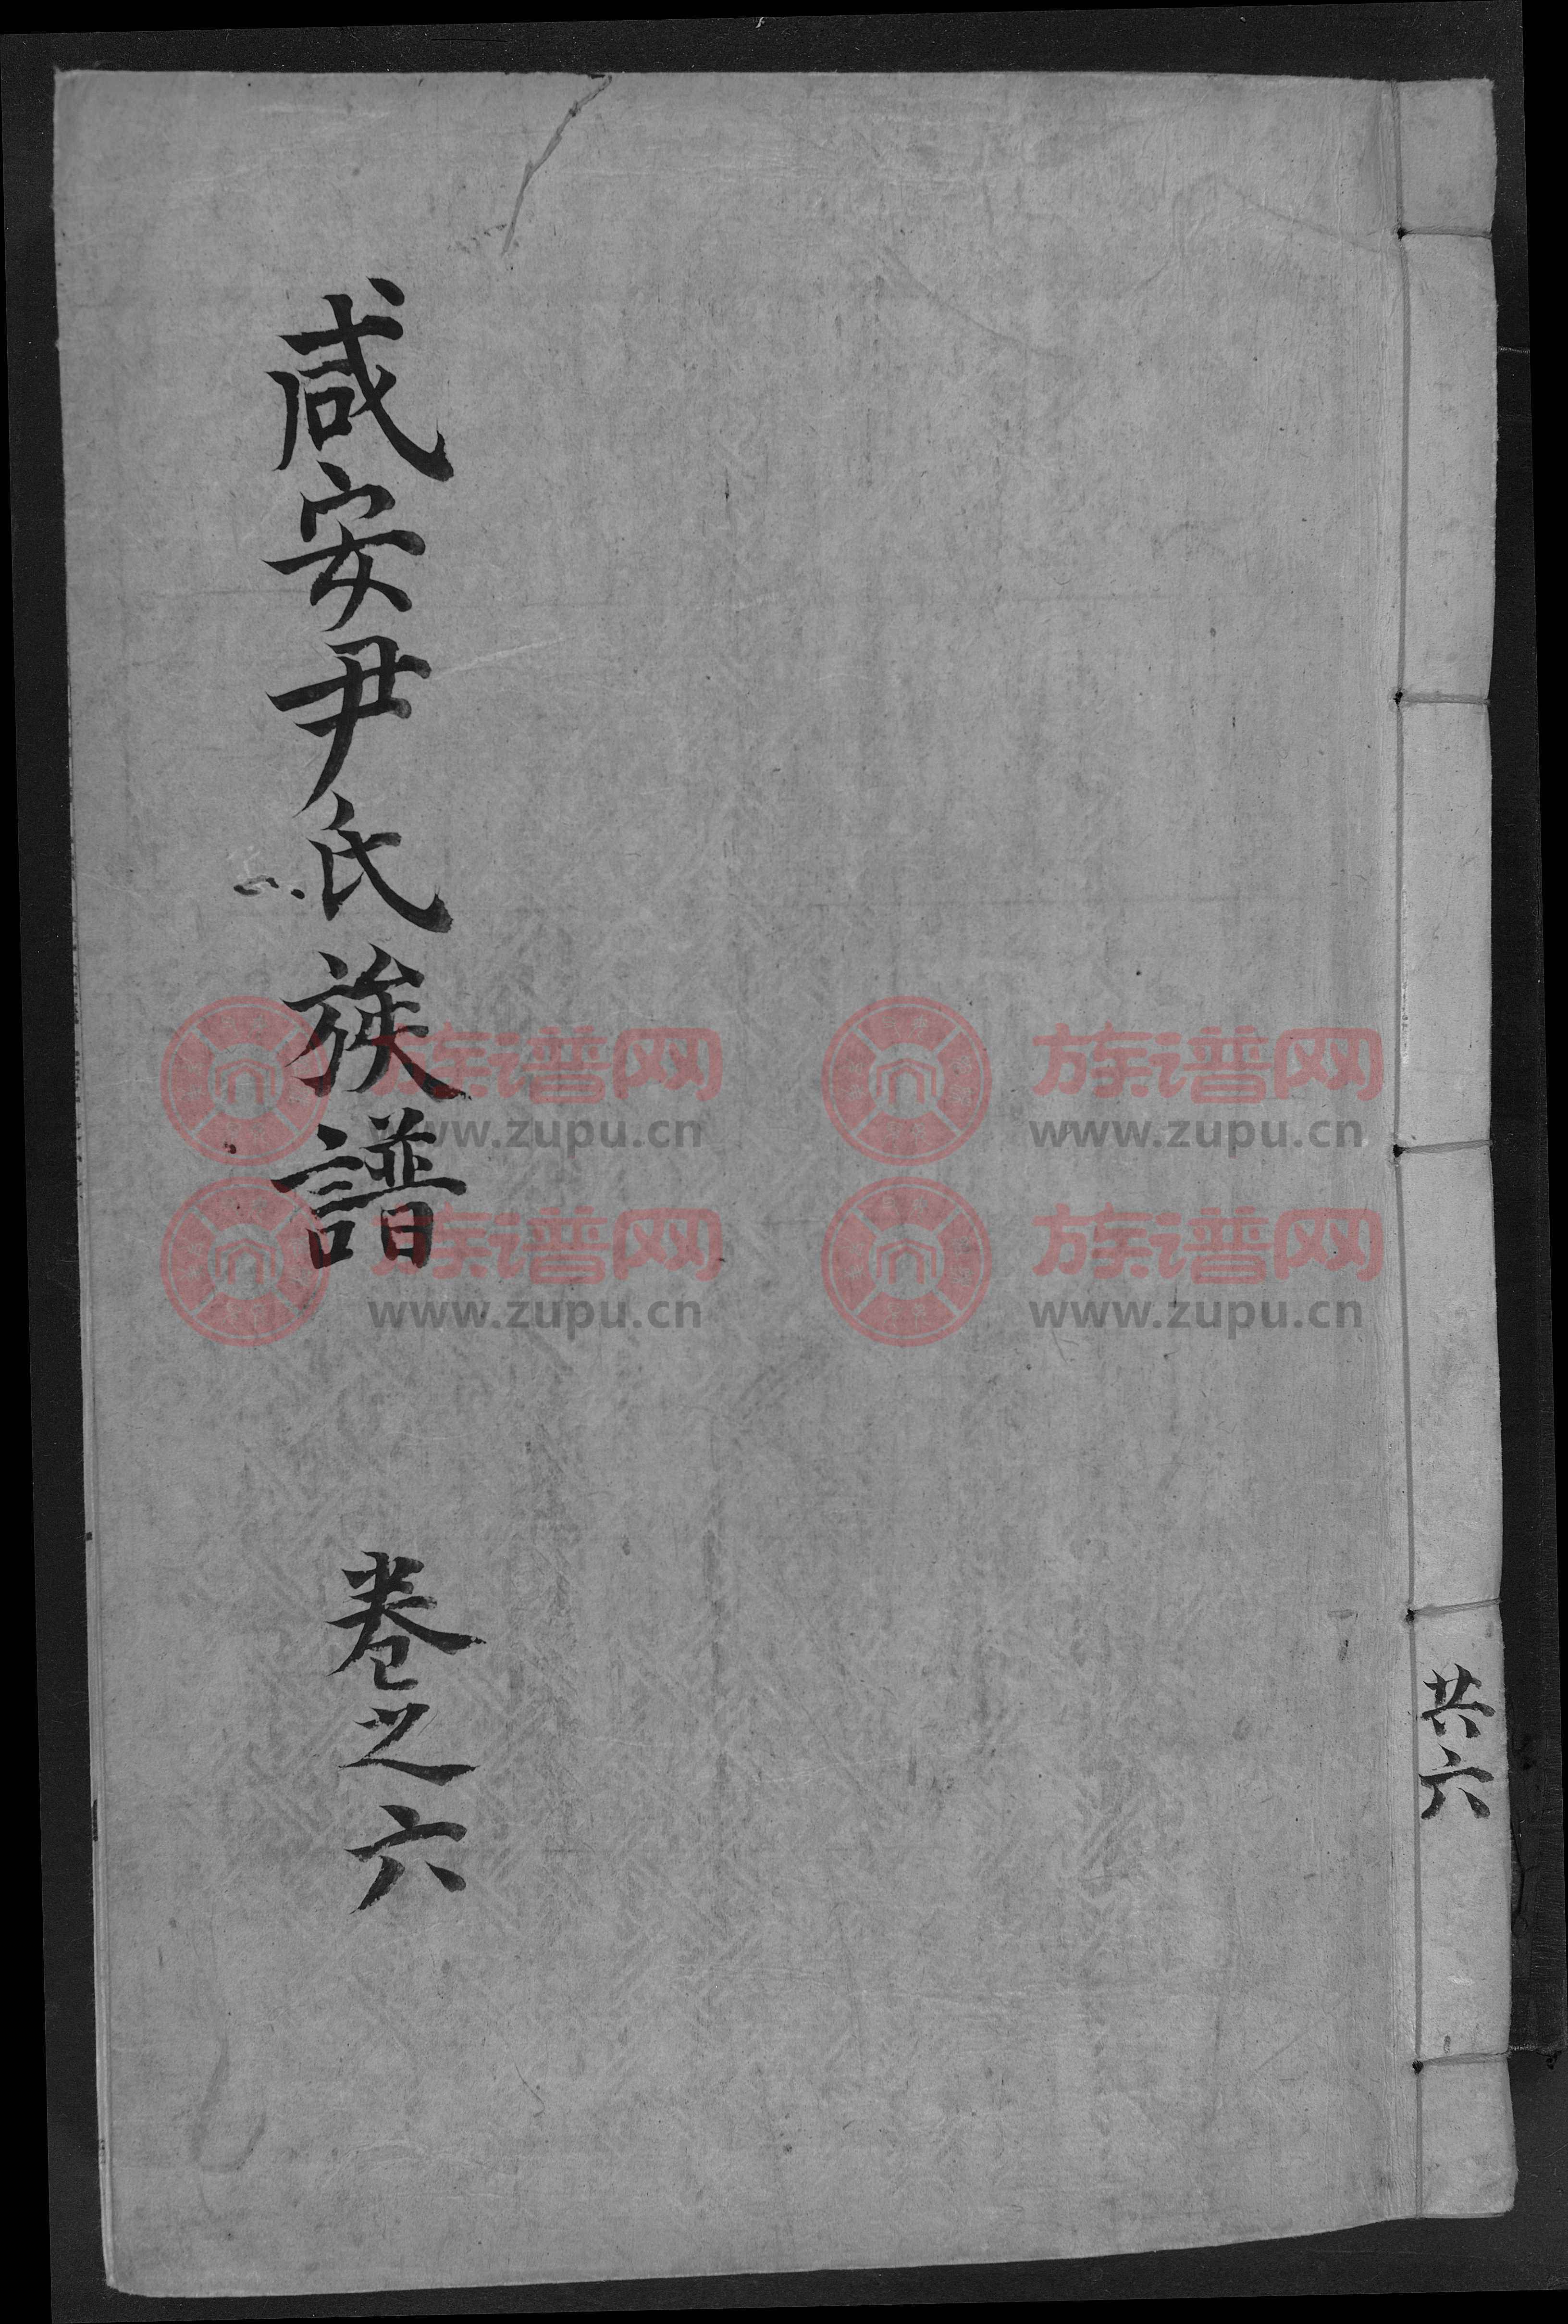 共六
咸安尹氏族譜 卷之六
族谱网 族谱网
www.zupu.cn www.zupu.cn
族谱网 族谱网
www.zupu.cn www.zupu.cn